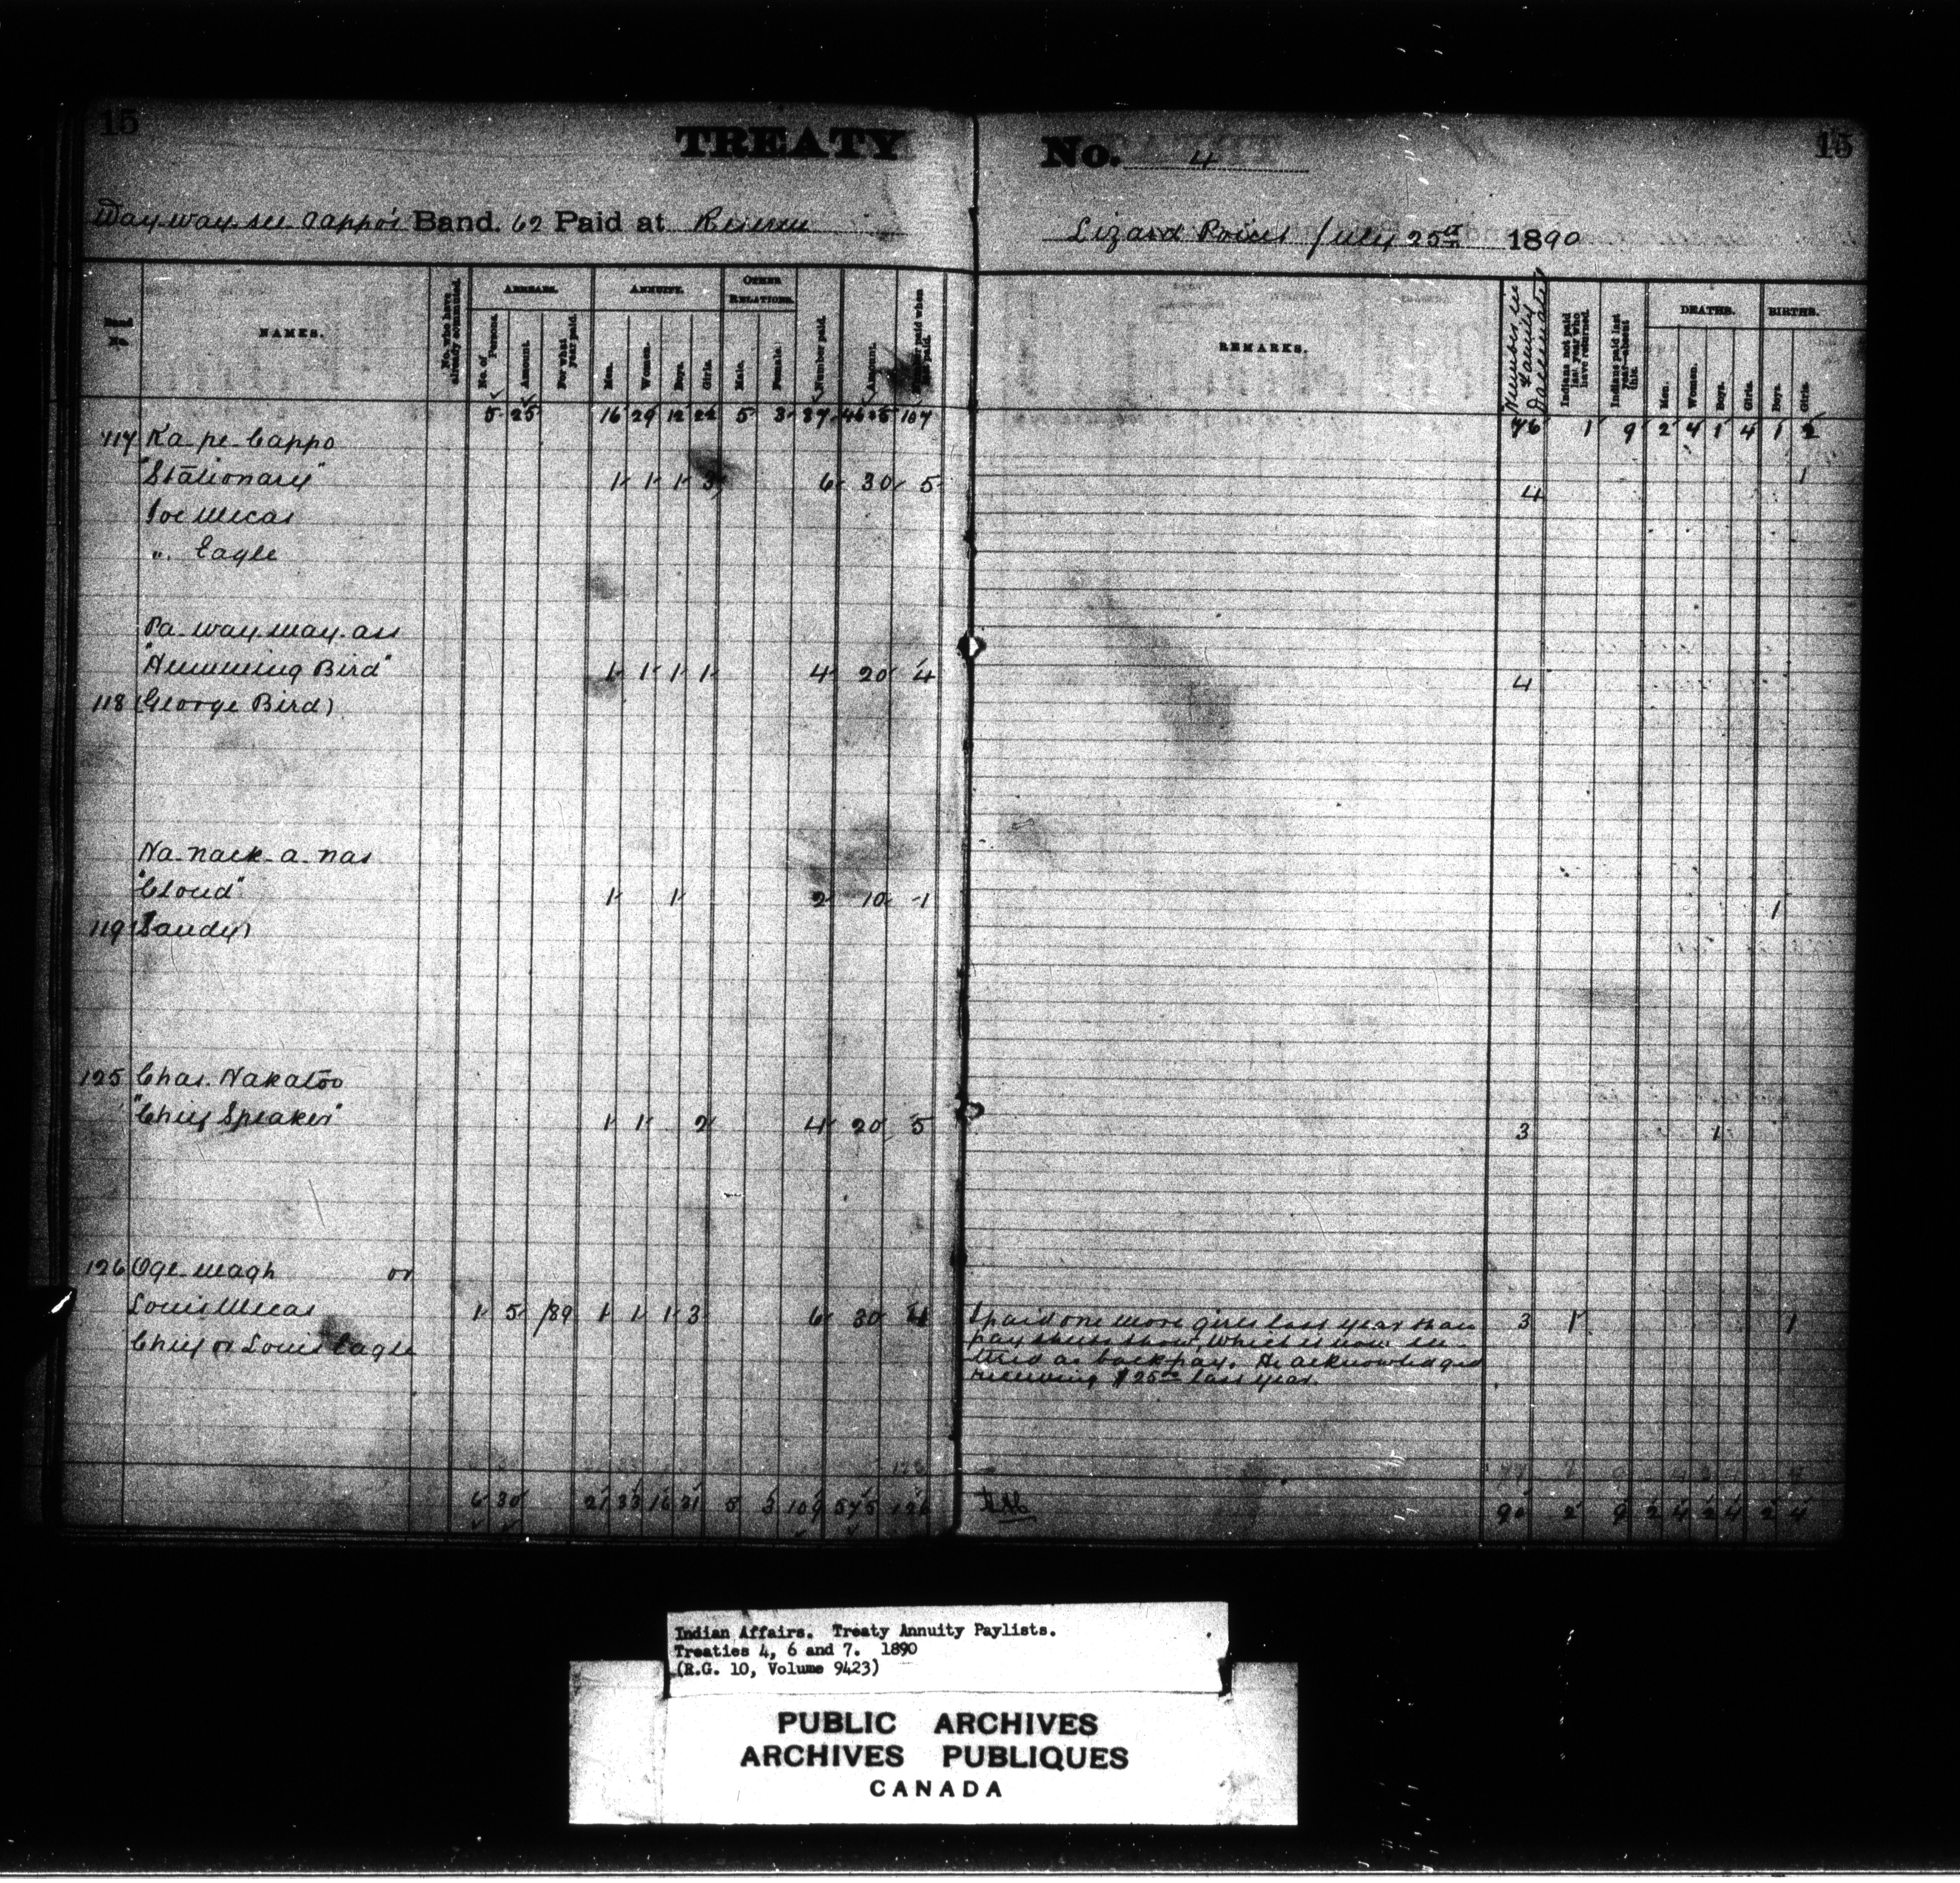 15
TREATY No. 4
15
Way-way-see-cappo's Band. 62 Paid at Reserve
Lizard Point July 25th 1890
Band No.
NAMES.
No. who have already commuted.
ARREARS.
No. of Persons.
Amount.
For what year paid.
ANNUITY.
Men.
Women.
Boys.
Girls.
OTHER RELATIONS.
Male.
Female.
Number paid.
Amount.
Number paid when last paid.
REMARKS.
Number in Family Vaccinated
Indians not paid last year who have returned.
Indians paid last year—absent this.
DEATHS.
Men.
Women.
Boys.
Girls.
BIRTHS.
Boys.
Girls.
5 25 16 29 12 22 5 3 87 107
76 1 9 2 4 1 4 1 2
117 Ka-pe-Cappo
"Stationary" 1 1 1 3 6 30 5 4 1
Joe Mecas
" Eagle
Pa-way-way-ass
"Humming Bird" 1 1 1 1 4 20 4 4
118 (George Bird)
Na-nack-a-nas
"Cloud" 1 1 2 10 1 1
119 (Sandy)
125 Chas. Nakatoo
"Chief Speaker" 1 1 2 4 20 5 3 1
126 Oge-magh or
Louis Mecas 1 5 /89 1 1 1 3 6 30 4 3 1 1
Chief or Louis Eagle
I paid one more girl last year than
pay sheets show, which is now en-
tered as back pay. He acknowledged
receiving $25.00 last year.
6 30 21 33 16 31 5 3 109 575 126
90 2 9 2 4 2 4 2 4
Indian Affairs. Treaty Annuity Paylists.
Treaties 4, 6 and 7. 1890
(R.G. 10, Volume 9423)
PUBLIC ARCHIVES
ARCHIVES PUBLIQUES
CANADA